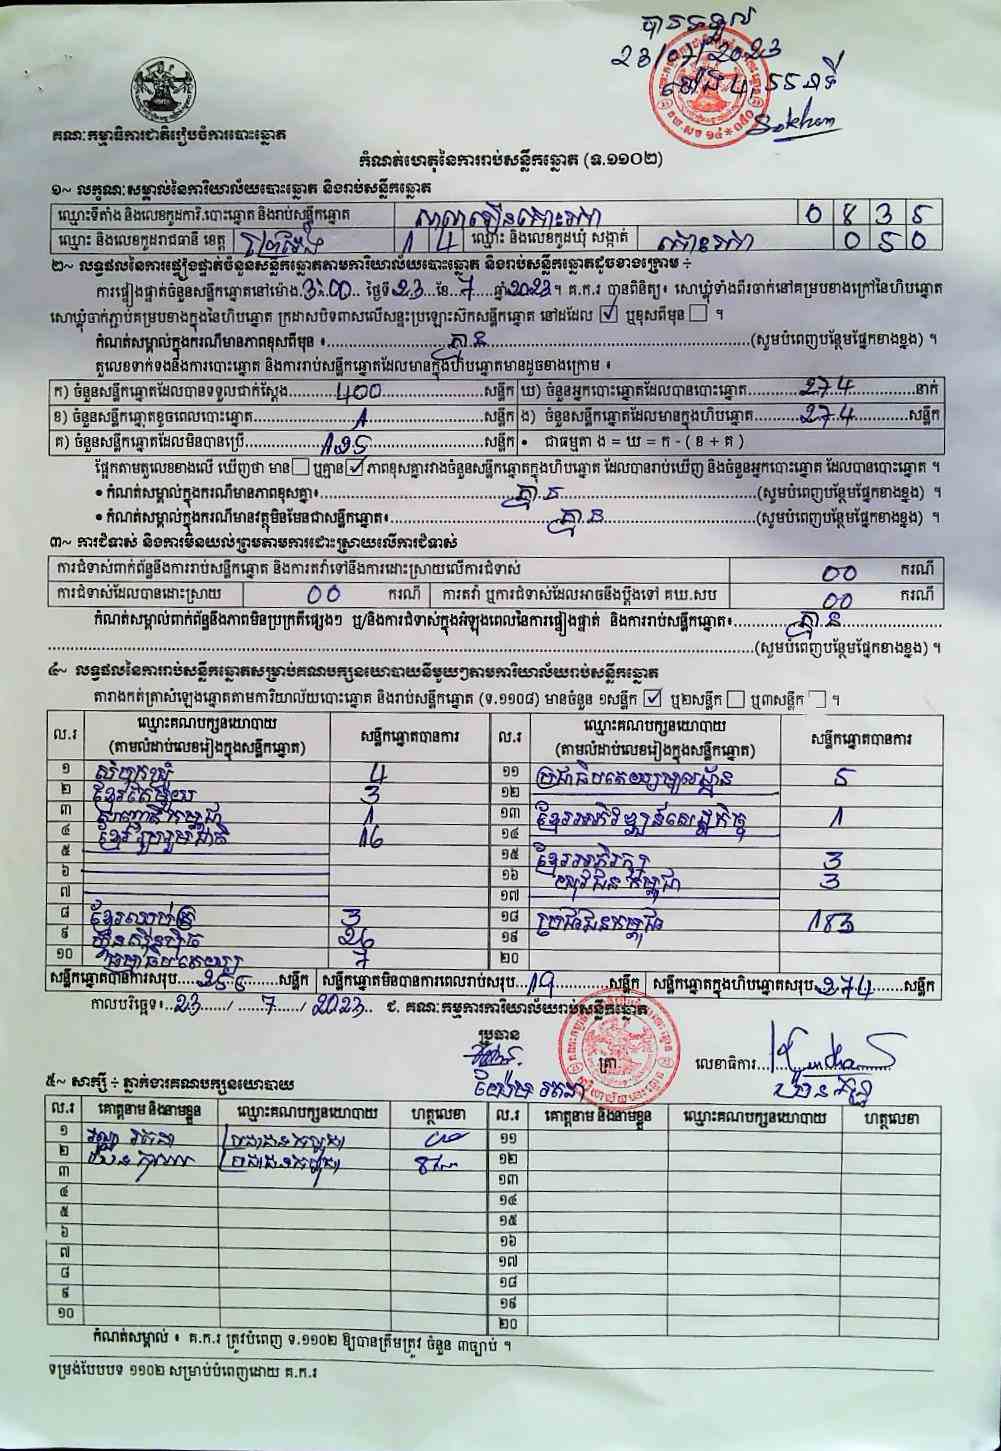 បានទទួល
23/07/2023
ម៉ោង 4, 55 នាទី
Sokhom
គណៈកម្មាធិការជាតិរៀបចំការបោះឆ្នោត
កំណត់ហេតុនៃការរាប់សន្លឹកឆ្នោត (ទ.១១០២)
១~ លក្ខណៈសម្គាល់នៃការិយាល័យបោះឆ្នោត និងរាប់សន្លឹកឆ្នោត
ឈ្មោះទីតាំង និងលេខកូដការិ.បោះឆ្នោត និងរាប់សន្លឹកឆ្នោត 0 8 3 5
ឈ្មោះ និងលេខកូដរាជធានី ខេត្ត ព្រៃវែង 1 4 ឈ្មោះ និងលេខកូដឃុំ សង្កាត់ 0 5 0
២~ លទ្ធផលនៃការផ្ទៀងផ្ទាត់ចំនួនសន្លឹកឆ្នោតតាមការិយាល័យបោះឆ្នោត និងរាប់សន្លឹកឆ្នោតដូចខាងក្រោម ÷
ការផ្ទៀងផ្ទាត់ចំនួនសន្លឹកឆ្នោតនៅម៉ោង 3:00 ថ្ងៃទី 23 ខែ 7 ឆ្នាំ 2023 ។ គ.ក.រ បានពិនិត្យ៖ សោឃ្លុំទាំងពីរចាក់នៅគម្របខាងក្រៅនៃហិបឆ្នោត
សោឃ្លុំចាក់ភ្ជាប់គម្របខាងក្នុងនៃហិបឆ្នោត ក្រដាសបិទពាសលើសន្ទះប្រឡោះសិកសន្លឹកឆ្នោត នៅដដែល ☑ ឬខុសពីមុន ☐ ។
កំណត់សម្គាល់ក្នុងករណីមានភាពខុសពីមុន ៖ គ្មាន (សូមបំពេញបន្ថែមផ្នែកខាងខ្នង) ។
តួលេខទាក់ទងនឹងការបោះឆ្នោត និងការរាប់សន្លឹកឆ្នោតដែលមានក្នុងហិបឆ្នោតមានដូចខាងក្រោម ៖
ក) ចំនួនសន្លឹកឆ្នោតដែលបានទទួលជាក់ស្តែង 400 សន្លឹក ឃ) ចំនួនអ្នកបោះឆ្នោតដែលបានបោះឆ្នោត 274 នាក់
ខ) ចំនួនសន្លឹកឆ្នោតខូចពេលបោះឆ្នោត 1 សន្លឹក ង) ចំនួនសន្លឹកឆ្នោតដែលមានក្នុងហិបឆ្នោត 274 សន្លឹក
គ) ចំនួនសន្លឹកឆ្នោតដែលមិនបានប្រើ 125 សន្លឹក • ជាធម្មតា ង = ឃ = ក - ( ខ + គ )
ផ្អែកតាមតួលេខខាងលើ ឃើញថា មាន ☐ ឬគ្មាន ☑ ភាពខុសគ្នារវាងចំនួនសន្លឹកឆ្នោតក្នុងហិបឆ្នោត ដែលបានរាប់ឃើញ និងចំនួនអ្នកបោះឆ្នោត ដែលបានបោះឆ្នោត ។
• កំណត់សម្គាល់ក្នុងករណីមានភាពខុសគ្នា៖ គ្មាន (សូមបំពេញបន្ថែមផ្នែកខាងខ្នង) ។
• កំណត់សម្គាល់ក្នុងករណីមានវត្ថុមិនមែនជាសន្លឹកឆ្នោត៖ គ្មាន (សូមបំពេញបន្ថែមផ្នែកខាងខ្នង) ។
៣~ ការជំទាស់ និងការមិនយល់ព្រមតាមការដោះស្រាយលើការជំទាស់
ការជំទាស់ពាក់ព័ន្ធនឹងការរាប់សន្លឹកឆ្នោត និងការតវ៉ាទៅនឹងការដោះស្រាយលើការជំទាស់ 00 ករណី
ការជំទាស់ដែលបានដោះស្រាយ 00 ករណី ការតវ៉ា ឬការជំទាស់ដែលអាចនឹងប្តឹងទៅ គឃ.សប 00 ករណី
កំណត់សម្គាល់ពាក់ព័ន្ធនឹងភាពមិនប្រក្រតីផ្សេងៗ ឬ/និងការជំទាស់ក្នុងអំឡុងពេលនៃការផ្ទៀងផ្ទាត់ និងការរាប់សន្លឹកឆ្នោត៖ គ្មាន
(សូមបំពេញបន្ថែមផ្នែកខាងខ្នង) ។
៤~ លទ្ធផលនៃការរាប់សន្លឹកឆ្នោតសម្រាប់គណបក្សនយោបាយនីមួយៗតាមការិយាល័យរាប់សន្លឹកឆ្នោត
តារាងកត់ត្រាសំឡេងឆ្នោតតាមការិយាល័យបោះឆ្នោត និងរាប់សន្លឹកឆ្នោត (ទ.១១០៨) មានចំនួន ១សន្លឹក ☑ ឬ២សន្លឹក ☐ ឬ៣សន្លឹក ☐ ។
ល.រ ឈ្មោះគណបក្សនយោបាយ (តាមលំដាប់លេខរៀងក្នុងសន្លឹកឆ្នោត) សន្លឹកឆ្នោតបានការ ល.រ ឈ្មោះគណបក្សនយោបាយ (តាមលំដាប់លេខរៀងក្នុងសន្លឹកឆ្នោត) សន្លឹកឆ្នោតបានការ
១ សំបុកឃ្មុំ 4 ១១ ប្រជាធិបតេយ្យមូលដ្ឋាន 5
២ ខ្មែរតែមួយ 3 ១២
៣ សញ្ជាតិកម្ពុជា 1 ១៣ ខ្មែរអភិវឌ្ឍន៍សេដ្ឋកិច្ច 1
៤ ខ្មែររួបរួមជាតិ 16 ១៤
៥ ១៥ ខ្មែរអភិរក្ស 3
៦ ១៦ យុវជនកម្ពុជា 3
៧ ១៧
៨ ខ្មែរឈប់ក្រ 3 ១៨ ប្រជាជនកម្ពុជា 183
៩ ហ្វ៊ុនស៊ិនប៉ិច 26 ១៩
១០ ធម្មាធិបតេយ្យ 7 ២០
សន្លឹកឆ្នោតបានការសរុប 255 សន្លឹក សន្លឹកឆ្នោតមិនបានការពេលរាប់សរុប 19 សន្លឹក សន្លឹកឆ្នោតក្នុងហិបឆ្នោតសរុប 274 សន្លឹក
កាលបរិច្ឆេទ៖ 23 / 7 / 2023 ជ. គណៈកម្មការការិយាល័យរាប់សន្លឹកឆ្នោត
ប្រធាន
ត្រា លេខាធិការ
៥~ សាក្សី ÷ ភ្នាក់ងារគណបក្សនយោបាយ
ល.រ គោត្តនាម និងនាមខ្លួន ឈ្មោះគណបក្សនយោបាយ ហត្ថលេខា ល.រ គោត្តនាម និងនាមខ្លួន ឈ្មោះគណបក្សនយោបាយ ហត្ថលេខា
១ ប្រជាជនកម្ពុជា ១១
២ ប្រជាជនកម្ពុជា ១២
៣ ១៣
៤ ១៤
៥ ១៥
៦ ១៦
៧ ១៧
៨ ១៨
៩ ១៩
១០ ២០
កំណត់សម្គាល់ ៖ គ.ក.រ ត្រូវបំពេញ ទ.១១០២ ឱ្យបានត្រឹមត្រូវ ចំនួន ៣ច្បាប់ ។
ទម្រង់បែបបទ ១១០២ សម្រាប់បំពេញដោយ គ.ក.រ